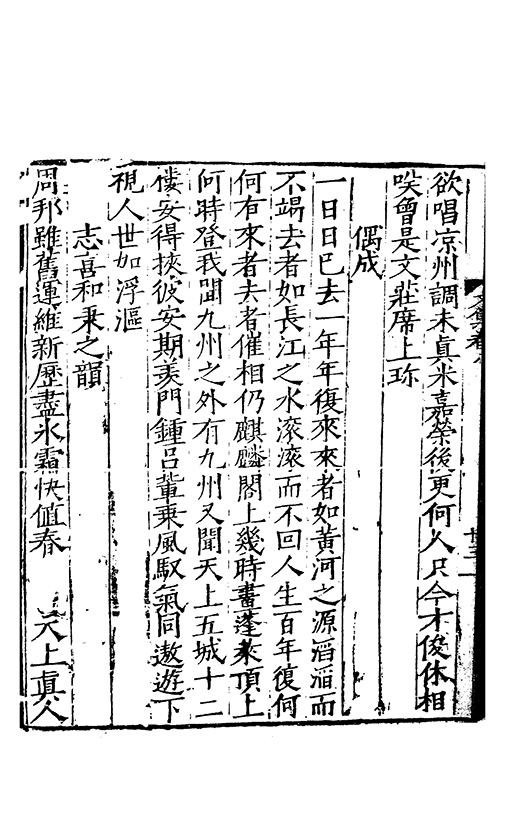 欲唱凉州調未真米嘉榮後更何人只今才俊休相
咲曾是文莊席上珎
偶成
一日日已去一年年復來來者如黃河之源滔滔而
不竭去者如長江之水滚滚而不回人生百年復何
何有來者去者催相仍麒麟閣上幾時畫蓬萊頂上
何時登我聞九州之外有九州又聞天上五城十二
樓安得挾彼安期羡門鍾呂輩乘風馭氣同遨遊下
視人世如浮漚
志喜和秉之韻
周邦雖舊運維新歷盡氷霜快值春 天上真人